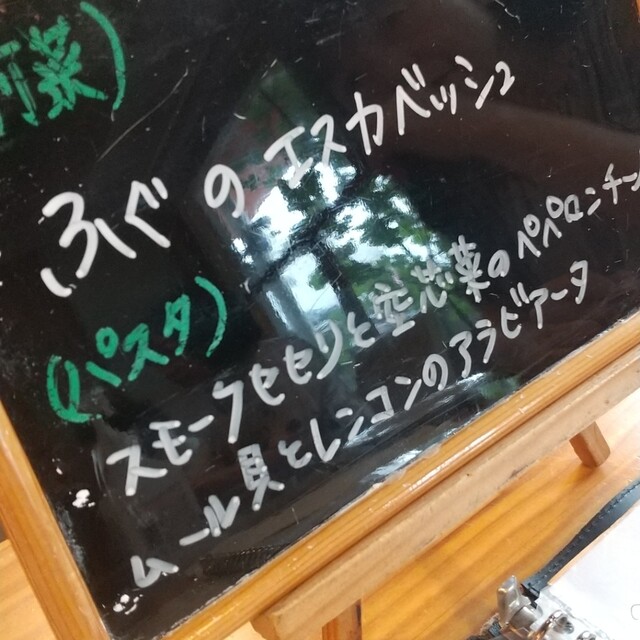 菜)
ふぐのエスカベッシュ
(パスタ)
スモークセセリと空芯菜のペペロンチー
ムール貝とレンコンのアラビアータ